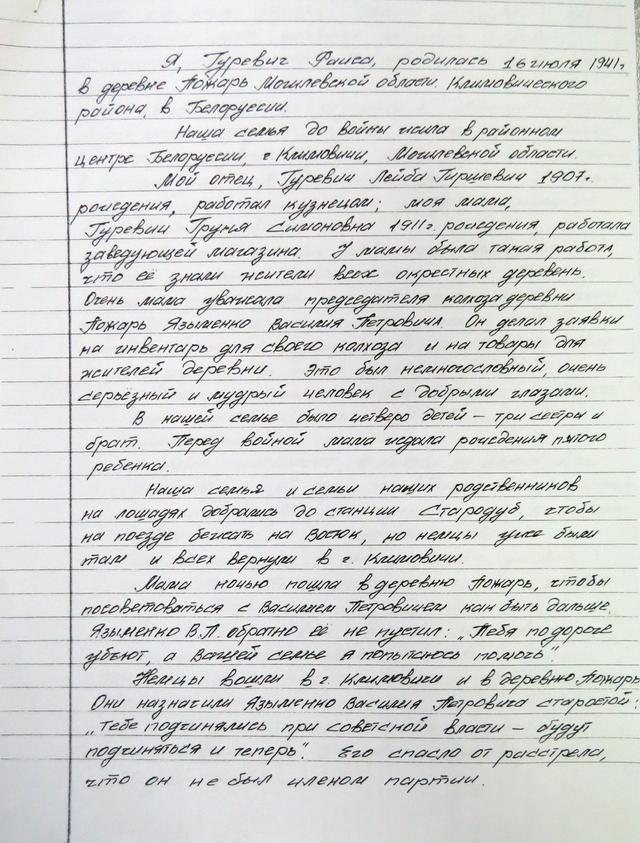 Я, Гуревич Раиса, родилась 16 июля 1941г
в деревне Пожарь Могилевской области. Климовического
района, в Белоруссии.
Наша семья до войны жила в районном
центре Белоруссии, г. Климовичи, Могилевской области.
Мой отец, Гуревич Лейба Гиршевич 1907г.
рождения, работал кузнецом; моя мама,
Гуревич Груня Симоновна 1911г. рождения, работала
заведующей магазина. У мамы была такая работа,
что её знали жители всех окрестных деревень.
Очень мама уважала председателя колхоза деревни
Пожарь Языменко Василия Петровича. Он делал заявки
на инвентарь для своего колхоза и на товары для
жителей деревни. Это был немногословный, очень
серьёзный и мудрый человек с добрыми глазами.
В нашей семье было четверо детей – три сестры и
брат. Перед войной мама ждала рождения пятого
ребенка.
Наша семья и семьи наших родственников
на лошадях добрались до станции Стародуб, чтобы
на поезде бежать на Восток, но немцы уже были
там и всех вернули в г. Климовичи.
Мама ночью пошла в деревню Пожарь, чтобы
посоветоваться с Василием Петровичем как быть дальше.
Языменко В.П. обратно её не пустил: „Тебя по дороге
убьют, а Вашей семье я попытаюсь помочь".
Немцы вошли в г. Климовичи и в деревню Пожарь
Они назначили Языменко Василия Петровича старостой:
„Тебе подчинялись при советской власти – будут
подчиняться и теперь". Его спасло от расстрела,
что он не был членом партии.